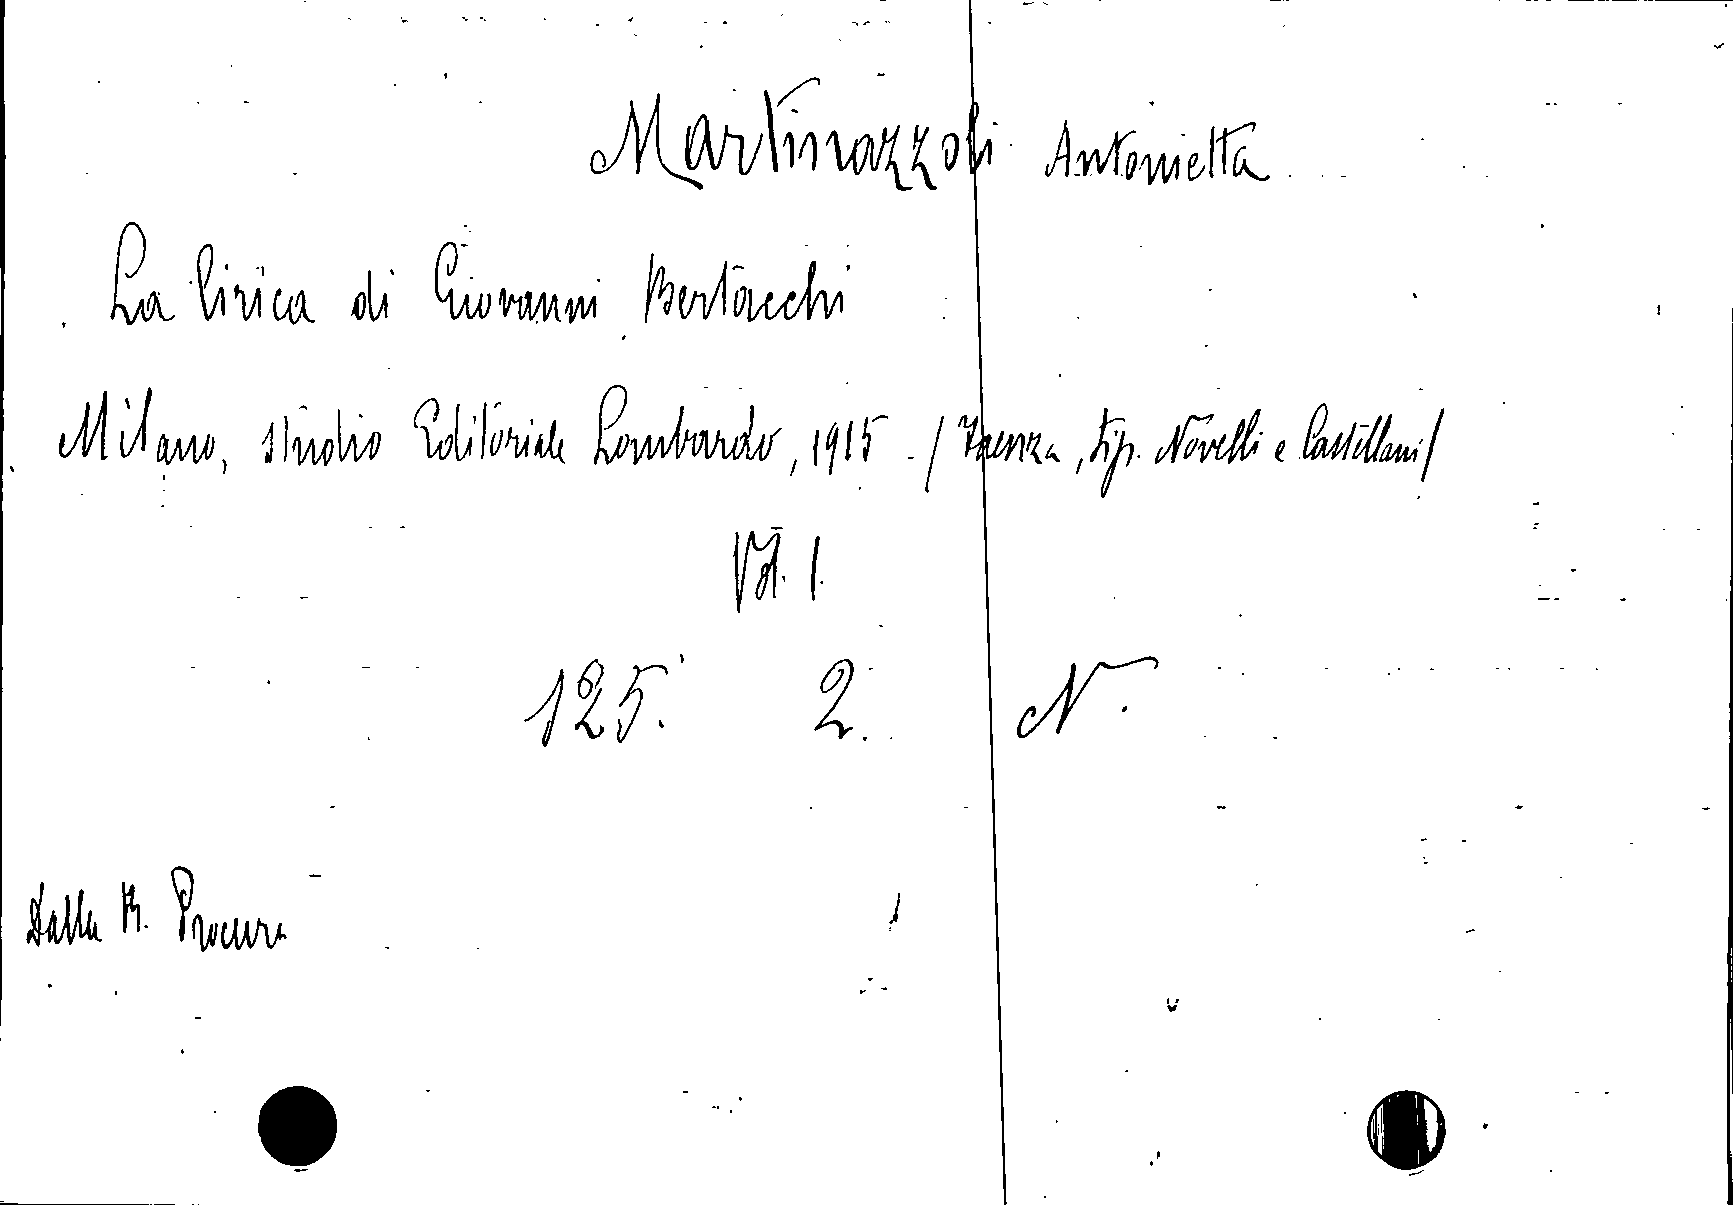 Martinazzoli Antonietta
La lirica di Giovanni Bertacchi
Milano, Studio Editoriale Lombardo, 1915 - / Faenza, tip. Novelli e Castellani /
Vol. 1.
125. 2. N.
Dalla R. Procura